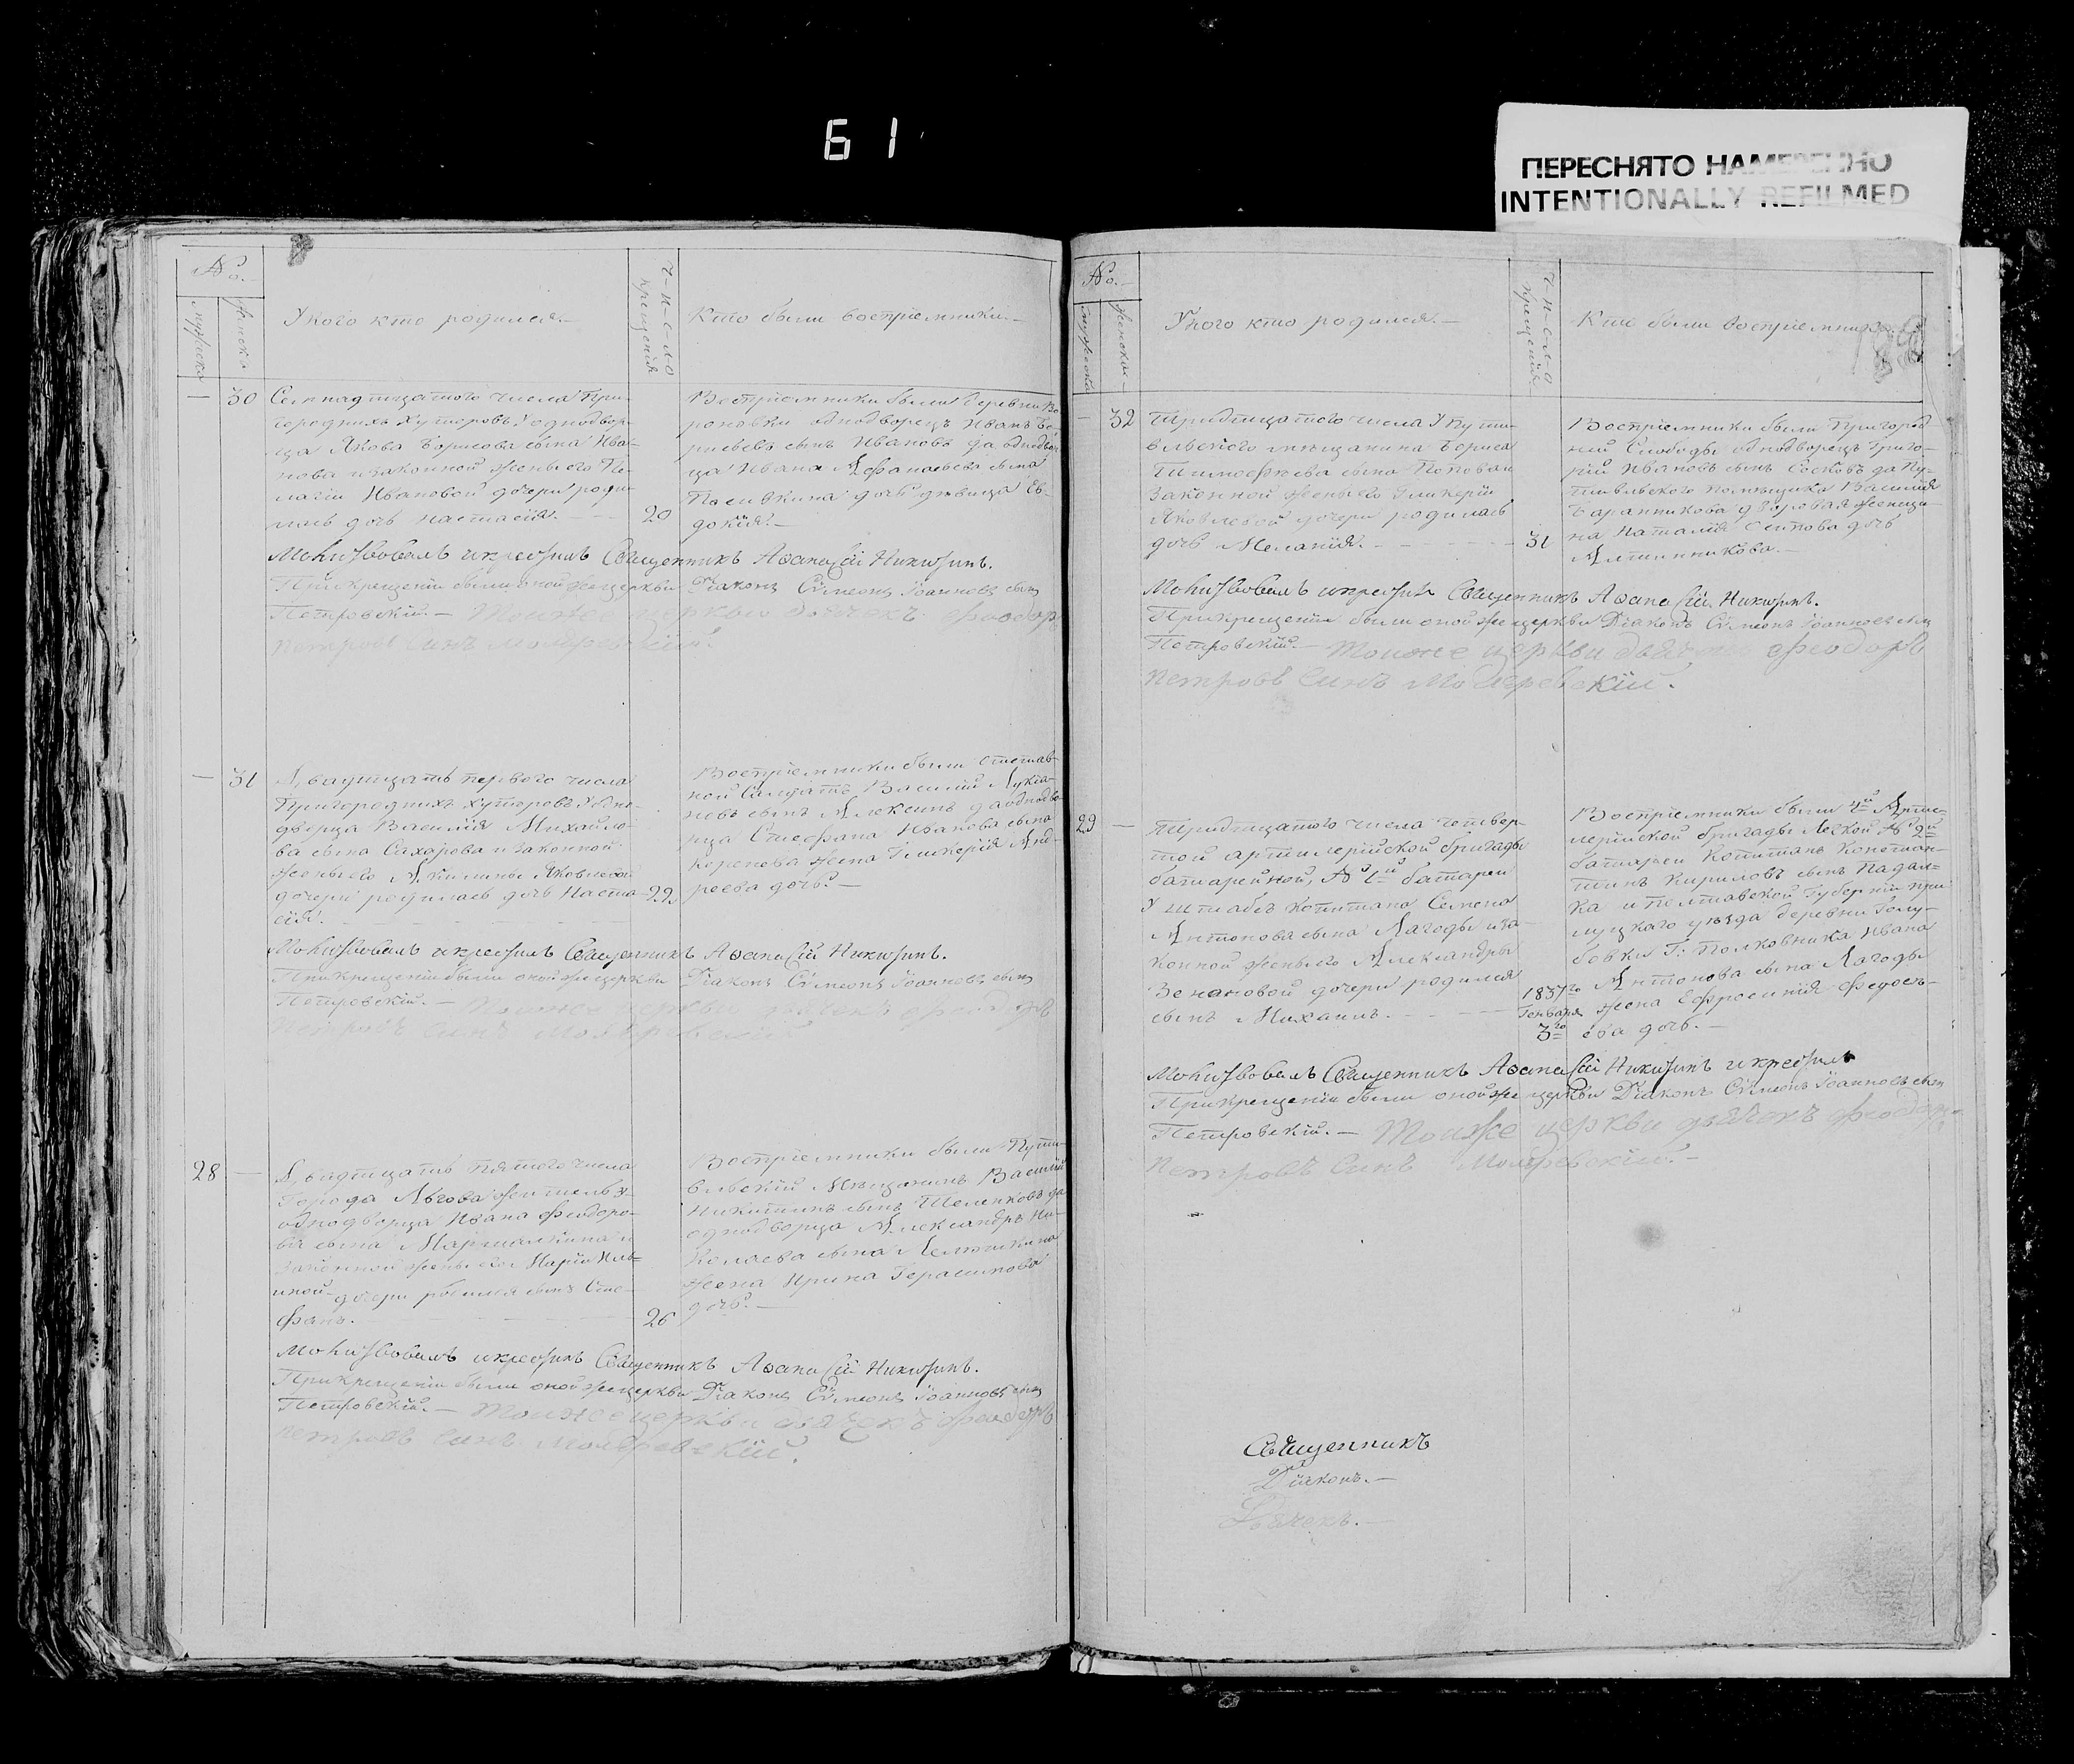 61
ПЕРЕСНЯТО НАМЕРЕННО
INTENTIONALLY REFILMED
№.
мужеска
женска
Укого кто родился.—
Ч-И-С-Л-О
крещенія
Кто были воспріемники.—
— 30
Семнадцатаго числа При-
городнихъ Хуторовъ Уодподвор-
ца Якова Борисова сына Ива-
нова изаконной жены его Пе-
лагіи Ивановой дочери роди-
лась дочь Настасія. —
20
Воспріемники были деревни Во-
роновки однодворецъ Иванъ
сынъ Ивановъ да однодвор
ца Ивана Афанасьева сына
дочь дѣвица Ев-
докія.—
Молитвовалъ икрестилъ Священникъ Аѳанасій Никитинъ.
Прикрещеніи были оной же церкви Діаконъ Сѵмеонъ Іоанновъ сынъ
Петровскій.— Тоиже церкви дьячекъ Феодоръ
петровъ синъ
— 31
Двадцать перваго числа
Пригороднихъ Хуторовъ Уодно-
дворца Василія Михайло-
ва сына Сахарова изаконной
жены его Акилины Яковлевой
дочери родилась дочь Наста-
сія.
22
Воспріемники были отстав-
ной Салдатъ Василій Лукія-
новъ сынъ Алексинъ даоднодво-
рца Стефана Иванова сына
Коренева жена Гликерія Анд-
реева дочь.—
Молитвовалъ икрестилъ Священникъ Аѳанасій Никитинъ.
Прикрещеніи были оной же церкви Діаконъ Сѵмеонъ Іоанновъ сынъ
Петровскій.— Тоиже церкви дьячекъ Феодоръ
петровъ синъ
28 —
Двадцать пятаго числа
Города Льгова жителья
однодворца Ивана Феодоро-
ва сына и
Законной жены его Маріи Иль-
иной дочери родился сынъ Сте-
фанъ.
26
Воспріемники были Пути-
вльскій Мѣщанинъ Василій
Никитинъ сынъ да
однодворца Александръ Ни-
колаева сына
жена Ирина Герасимова
дочь.—
Молитвовалъ икрестилъ Священникъ Аѳанасій Никитинъ.
Прикрещеніи были оной же церкви Діаконъ Сѵмеонъ Іоанновъ сынъ
Петровскій.— Тоиже церкви дьячекъ Феодоръ
петровъ синъ
№.—
мужеска
женска—
Укого кто родился.—
Ч-И-С-Л-О
крещенія
Кто были воспріемники.
— 32
Тридцатаго числа У пути-
вльскаго мѣщанина Бориса
Тимофѣева сына Попова и
Законной жены его Гликеріи
Яковлевой дочери родилась
дочь Меланія. —
31
Воспріемники были Пригород
ней Слободы однодворецъ Григо-
рій Ивановъ сынъ да Пу-
тивльскаго помѣщика Василія
Баранникова дворовая женщи-
на Наталія дочь
Молитвовалъ икрестилъ Священникъ Аѳанасій Никитинъ.
Прикрещеніи были оной же церкви Діаконъ Сѵмеонъ Іоанновъ сынъ
Петровскій.— Тоиже церкви дьячекъ Феодоръ
петровъ синъ
29 —
Тридцатаго числа четвер-
той артилерійской бригады
батарейной, №й батареи
У штабсъ капитана Семена
Антонова сына Лагоды иза-
конной жены его Александры
Зенановой дочери родился
сынъ Михаилъ. —
1837го
Генваря
3го
Воспріемники были 4й Арти-
лерійской бригады Легкой № 2й
батареи Капитанъ Констан-
тинъ Кириловъ сынъ Падал-
ка и полтавской Губерніи при
луцкаго уѣзда деревни Голу-
бовки Г: Полковника Ивана
Антонова сына Лагоды
жена Ефросинія Федось-
ева дочь.—
Молитвовалъ Священникъ Аѳанасій Никитинъ икрестилъ
Прикрещеніи были оной же церкви Діаконъ Сѵмеонъ Іоанновъ сынъ
Петровскій.— Тоиже церкви дьячекъ Феодоръ
петровъ синъ
Священникъ
Діяконъ.—
Дьячекъ.—